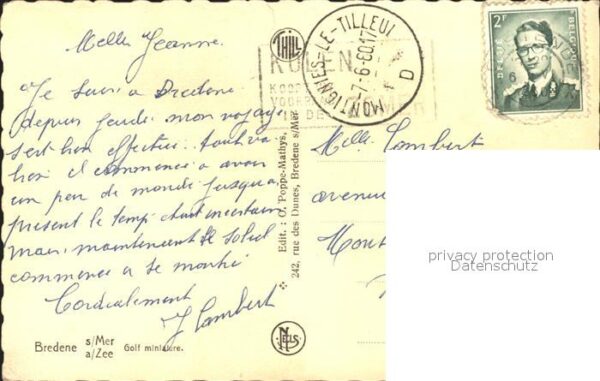 Melle Jeanne.
Je suis a Bredene
depuis jeudi mon voyage
s'est bien effectué. tout va
bien il commence a avoir
un peu de monde jusqu'a
present le temp était incertain
mais maintenant le soleil
commence a se montré
Cordialement
J Lambert
Bredene s/Mer
a/Zee
Golf miniature.
THILL
NELS
Edit.: O. Poppe-Mathys,
242, rue des Dunes, Bredene s/Mer
MONTIGNIES-LE-TILLEUL
-7-6-60.17
D
2F
BELGIE
Melle Lambert
avenue
privacy protection
Datenschutz